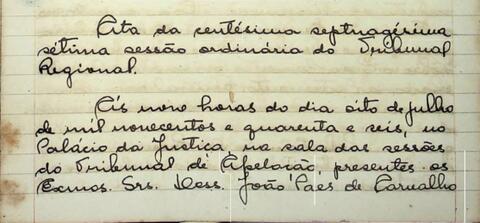 Ata da centésima septuagésima
sétima sessão ordinária do Tribunal
Regional.
Ás nove horas do dia oito de julho
de mil novecentos e quarenta e seis, no
Palácio da Justiça na sala das sessões
do Tribunal de Apelação, presentes os
Exmos. Srs. Dess. João Paes de Carvalho